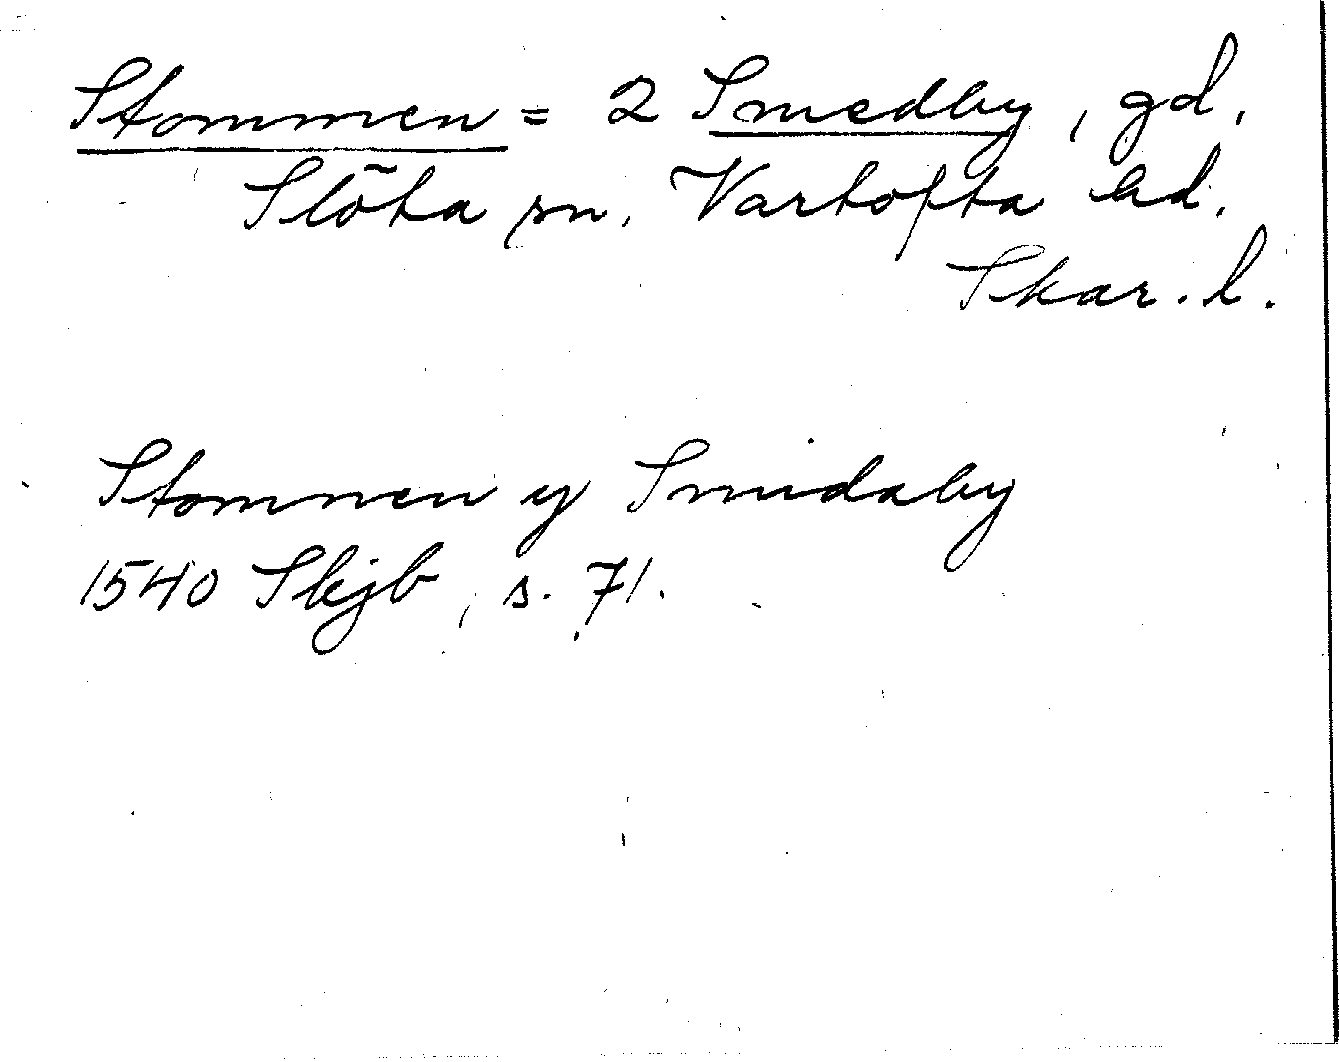 Stommen = 2 Smedby, gd,
Slöta sn, Vartofta hd.
Skar. l.
Stomnen y Smidaby
1540 Skjb, s. 71.